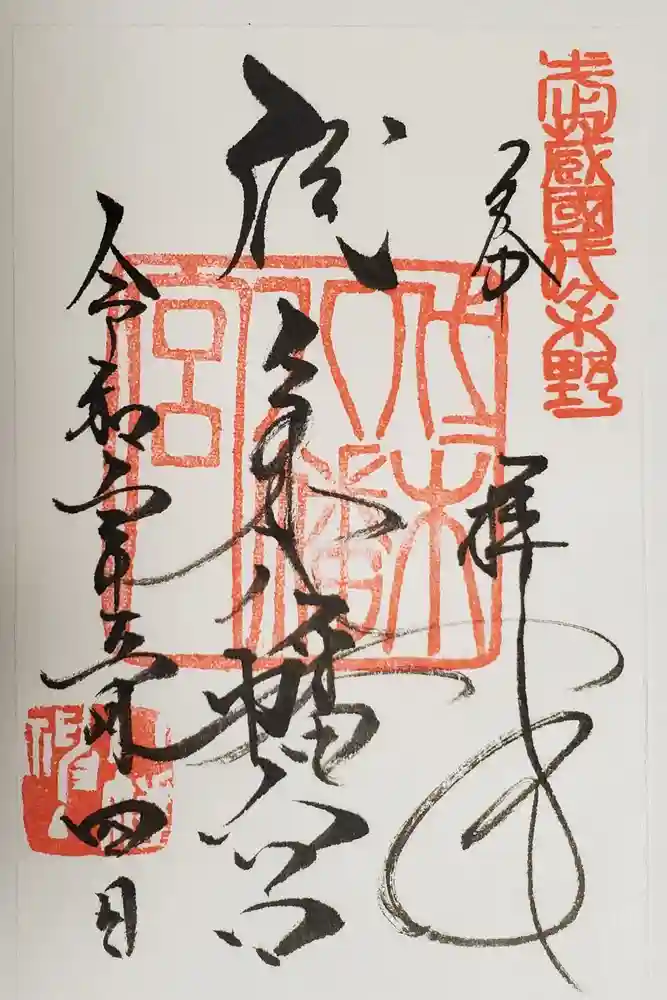 武蔵國代々木野
奉拝
代々木八幡宮
代々木
八幡
宮
令和元年五月四日